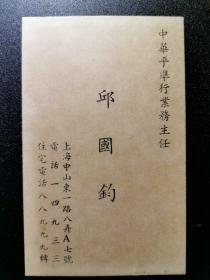 中華平準行業務主任
邱國鈞
上海中山東一路八弄A七號
電話一四九三三
住宅電話八八九九九轉